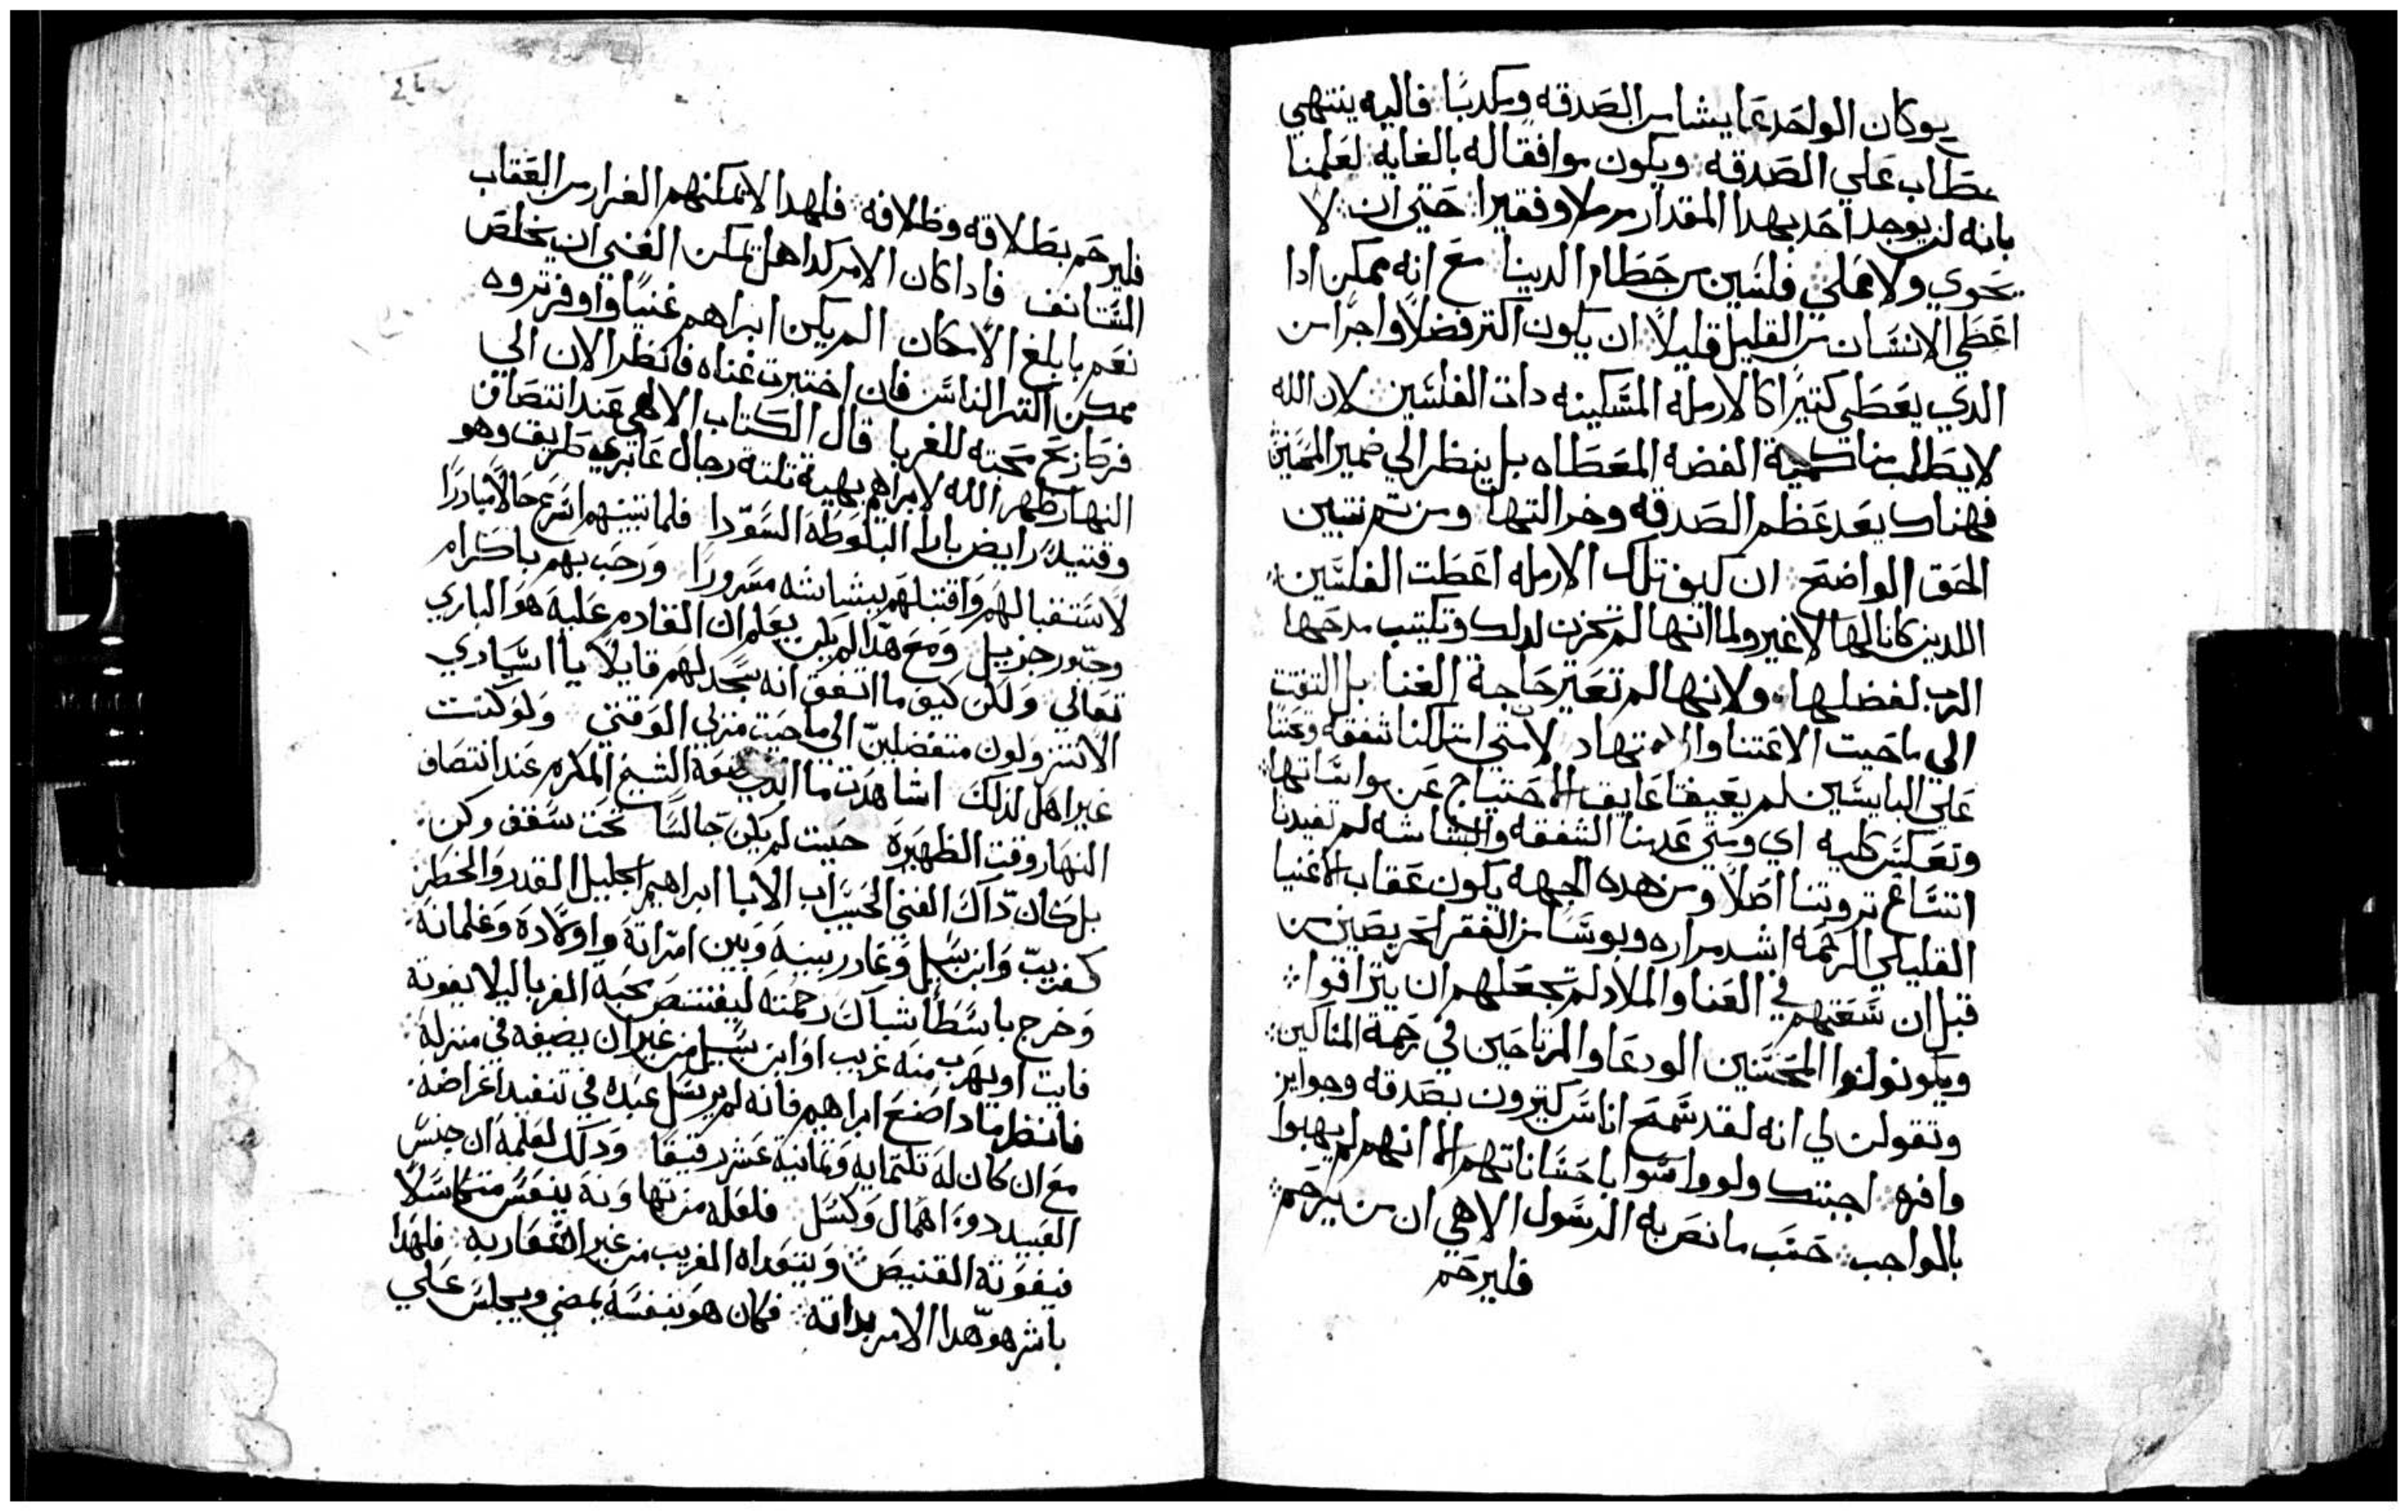 يوكان الواحد عما يشا من الصدقه وكدبا فاليه ينتهي
خطاب علي الصدقه ويكون موافقا له بالغايه لعلمنا
بانه لن يوجد احد بهدا المقدار مرملا وفقيرا حتي ان لا
يحوي ولا يملي فلسين من حطام الدينا مع انه ممكن ادا
اعطي الانسان من القليل قليلا ان يكون اكتر فضلا واجرا من
الدي يعطي كتيرا كالارمله المسكينه دات الفلسين لان الله
لا يطالبنا بكمية الفضه المعطاه بل ينظر الي ضمير المحسن
فهناك يعد عظم الصدقه وخدالتها ومن تم نتبين
الحق الواضح ان كيف تلك الارمله اعطت الفلسين
اللدين كانا لها لا غير ولما انها لم تحزن لدلك وتكتب مدحها
الرب لفضلها ولانها لم تعتبر حاجة الغنا بل التفتت
الي ما حيت الاعتنا والاجتهاد لا متي امتلكنا شفقه وعتنا
علي البايسين لم يعيقنا عايق الاحتياج عن مواساتها
وتعكس كليه اي ومتي عدمنا الشفقه والبشاشه لم تفيدنا
اتساع تروتنا اصلا ومن هده الجهه يكون عقاب الاغنيا
القليلي الرحمه اشد مراره وبوسا من الفقرا الحريصين من
قبل ان سعتهم في الغنا والملاد لم تجعلهم ان يترافوا
ويكونوا المحتنين الودعا والمرتاحين في رحمة المساكين
وتقولن لي انه لقد سمح اناس كتيرون بصدقه وجوايز
وافره اجبتك ولو واسوا باحساناتهم الا انهم لم يهبوا
بالواجب حسب ما نص به الرسول الاهي ان من يرحم
فليرحم
فليرحم بطلاقه وظلافه فلهدا لا يمكنهم الفرار من العقاب
المستانف فادا كان الامر كدا هل يمكن الغني ان يخلص
نعم بابلغ الامكان الم يكن ابراهم غنيا واوفر تروه
ممكن اكتر الناس فان اختبرت غناه فانظر الان الي
فرط محبته للغربا قال الكتاب الالاهي عند انتصاف
النهار ظهر الله لابراهيم بهية تلتة رجال عابري طريق وهو
وقتيد رايض بازا البلوطه السودا فلما تبينهم اسرع حالا مبادرا
لاستقبالهم واقتبلهم ببشاشه مسرورا ورحب بهم باكرام
وحبور جزيل ومع هدا لم يكن يعلم ان القادم عليه هو الباري
تعالي ولكن كيف ما اتفق انه سجد لهم قايلا يا اسيادي
الا تنزولون متفضلين الي ما حيت منزلي الوقتي ولو كنت
غير اهل لدلك اشاهدت ما الدي صنعة الشيخ المكرم عند انتصاف
النهار وقت الظهيرة حيت لم يكن جالسا تحت سقف وكن
بل كان داك الغني الحسيب اب الابا ابراهيم الجليل القدر والخطر
كغريب وابن سبيل وغادر بيته وبين امراته واولاده وغلمانه
وخرج باسطا شباك رحمته ليقتنص محبة الغربا ليلا يفوته
فايت او يهرب منه غريب او ابن سبيل من غير ان يضيفه في منزله
فانظر مادا صنع ابراهيم فانه لم يرسل عبده في تنفيد اغراضه
مع ان كان له تلتمايه وتمانية عشر رقيقا ودلك لعلمه ان جنس
العبيد دوه اهمال وكسل فلعله من تهاونه ينعس متكاسلا
فيفوته القنيص ويتعداه الغريب من غير اشعار به فلهدا
باشر هو هدا الامر بداته فكان هو بنفسه يمضي ويجلس علي